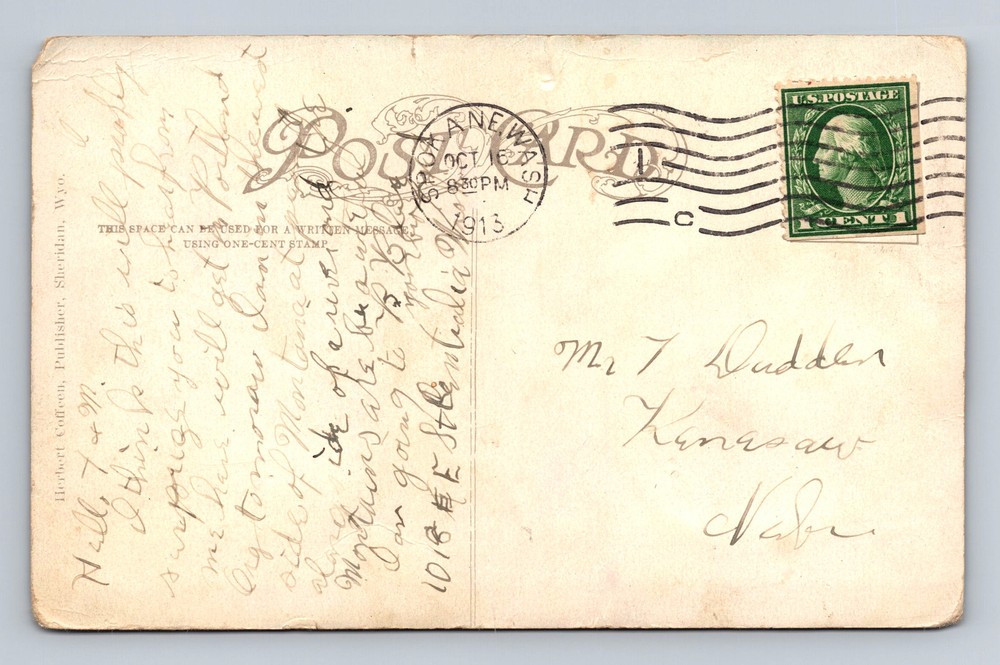 POST CARD
THIS SPACE CAN BE USED FOR A WRITTEN MESSAGE,
USING ONE-CENT STAMP
Herbert Coffeen, Publisher, Sheridan, Wyo.
SPOKANE WASH
OCT 16
8 30 PM
1913
C
U.S. POSTAGE
1 CENT 1
Hello T & M
I think this will
surprise you to hear from
me here will get to Portland
Org tomorrow I am
side of Montana
along side of a river and
Mountains are
I am going to
1018 E St
Centralia Wash
Mr T Dudden
Kenesaw
Nebr